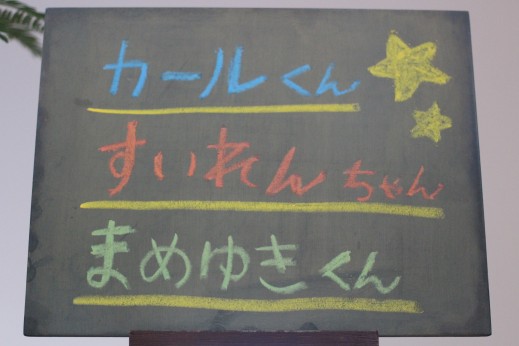 カールくん
すいれんちゃん
まめゆきくん